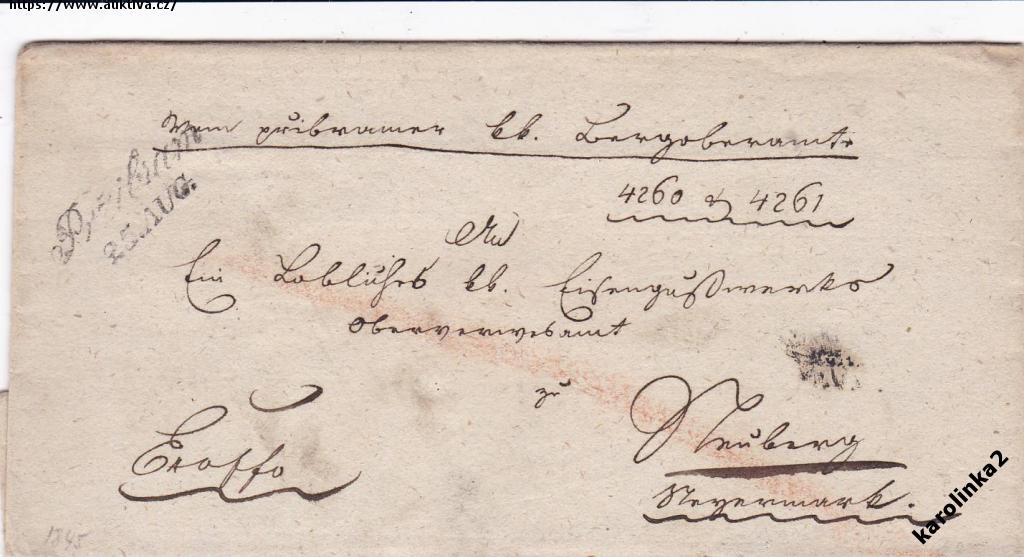 https://www.auktiva.cz/
Vom pribramer kk. Bergoberamte
Przibram
25. AUG.
4260 & 4261
An
Ein Lobliches kk. Eisengußwerks
Oberverwesamt
zu
Ex offo
Neuberg
Steyermark.
1845
karolinka2